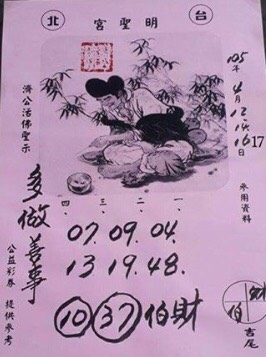 台 明聖宮 北
105年
4月
12.
14.
16日 17
參用資料
濟公活佛聖示
多做善事
公益彩券 提供參考
四、 三、 二、 一、
07. 09. 04.
13 19. 48.
10 37 伯財
伯 財
吉尾